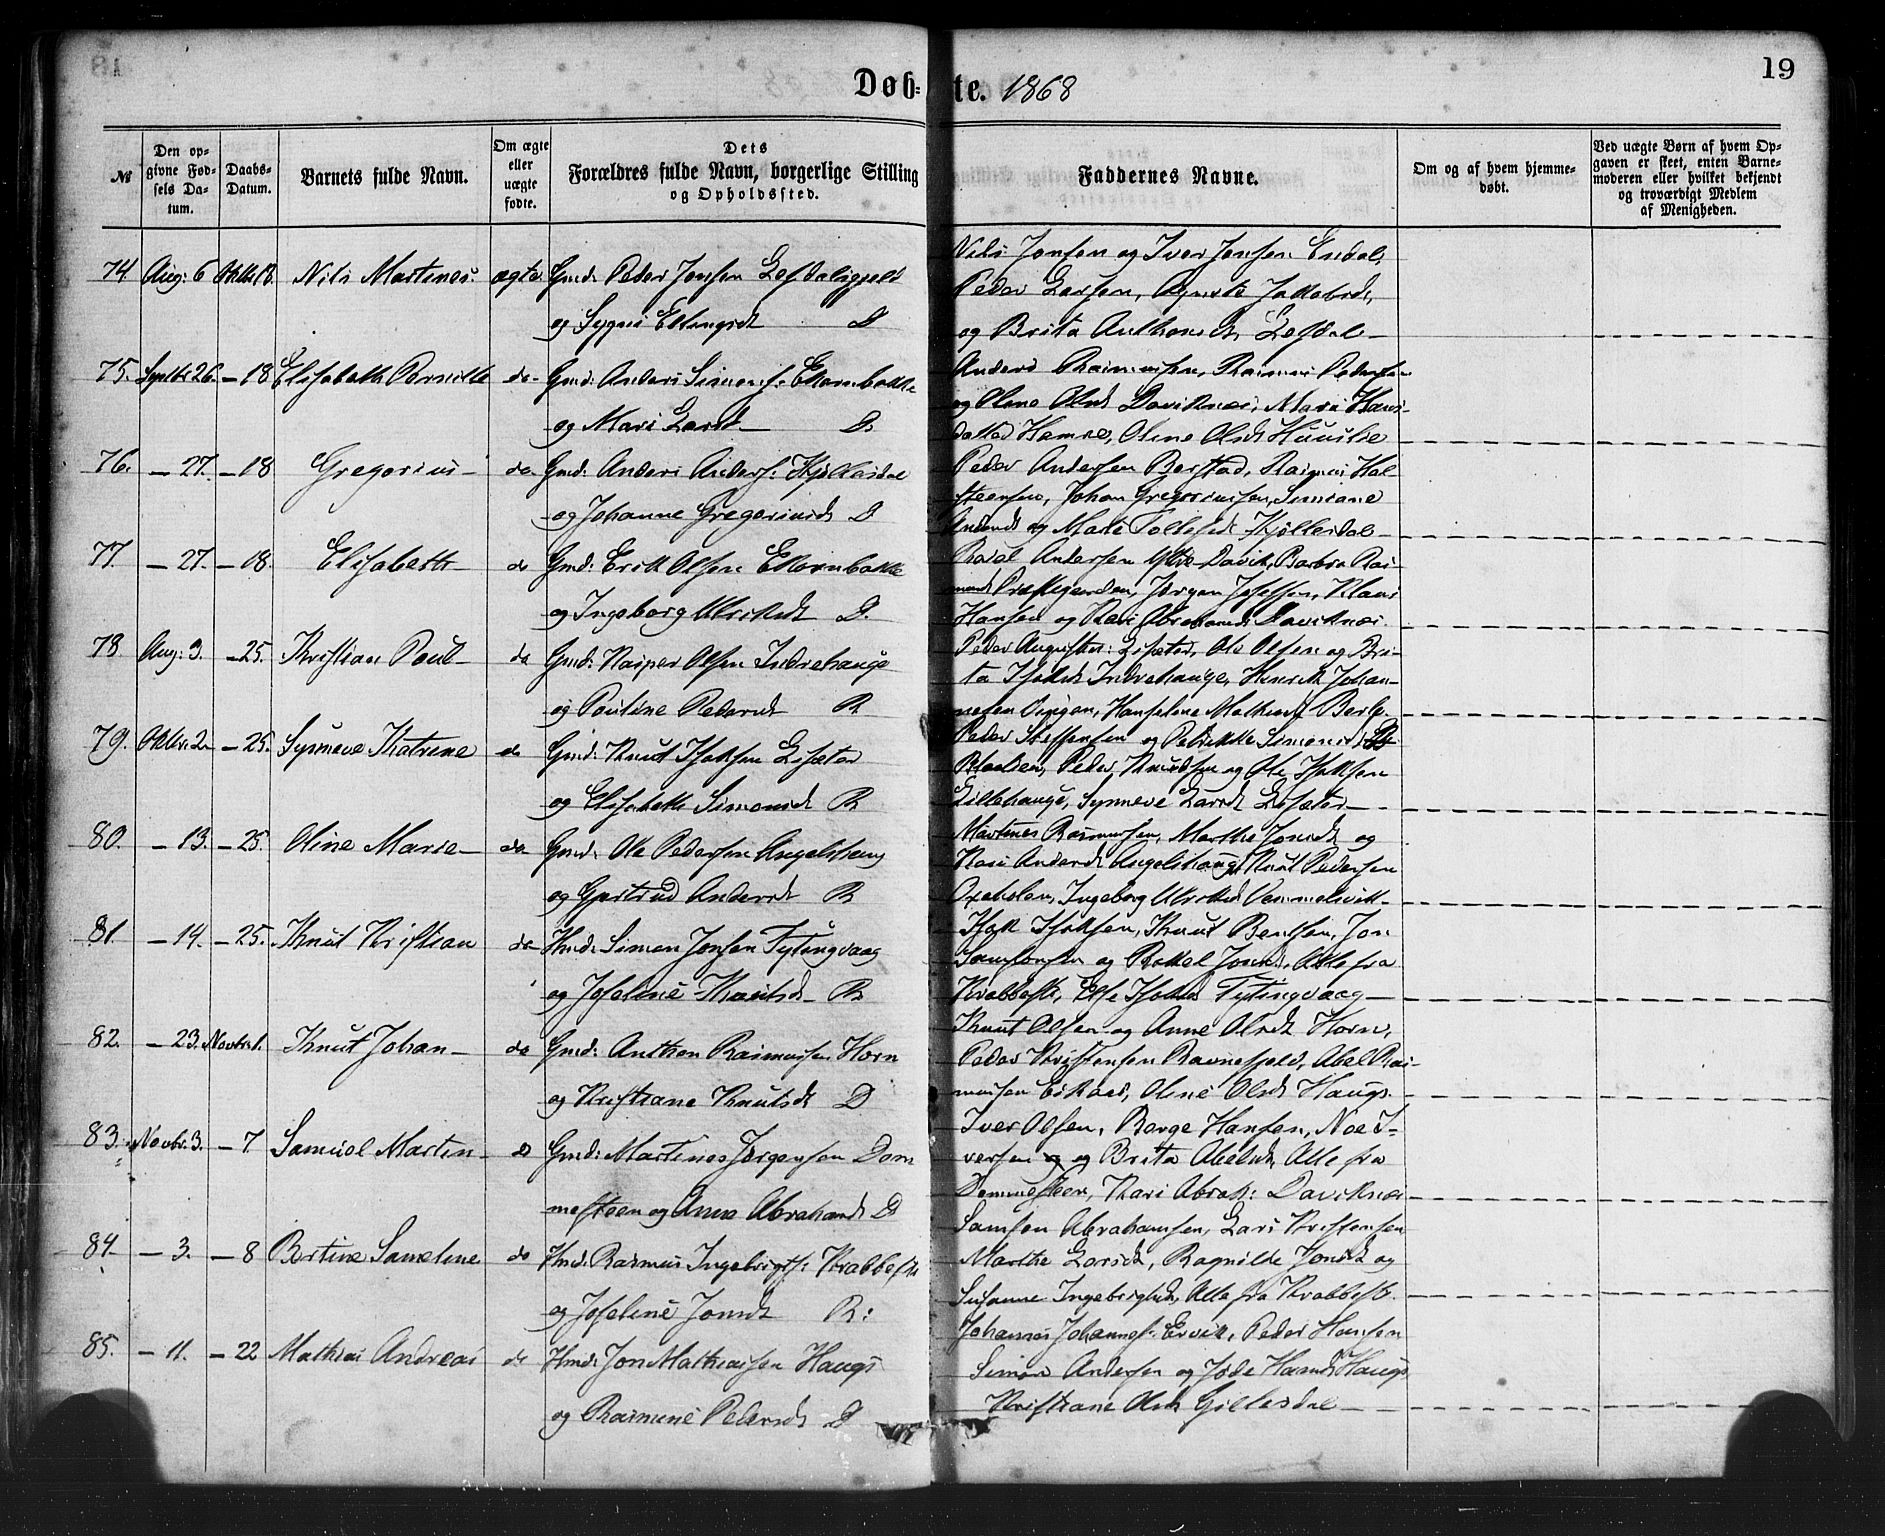 19
Døb=te. 1868
№
Den op-
givne Fød-
sels Da-
tum.
Daabs-
Datum.
Barnets fulde Navn.
Om ægte
eller
uægte
fødte.
Dets
Forældres fulde Navn, borgerlige Stilling
og Opholdssted.
Faddernes Navne.
Om og af hvem hjemme-
døbt.
Ved uægte Børn af hvem Op-
gaven er skeet, enten Barne-
moderen eller hvilket bekjendt
og troværdigt Medlem
af Menigheden.
74 Aug: 6 Oktbr 18. Nils Martines. ægte Gmd: Peder Jonsen Lefdaligjeld
og Sygni Ellingsdt D
Nils Jonsen og Iver Jonsen Endal,
Peder Larsen, Agnete Jakobsdt,
og Brita Anthonsdt Lefdal
75. Septbr 26. – 18 Elisabeth Pernille do Gmd: Anders Simons: Ekornbakke
og Mari Larsdt D.
Anders Rasmussen, Rasmus Pedersen
og Olena Olsdt Daviknes, Mari Hans-
datter Hamre, Oline Olsdt
76. – 27. – 18 Gregorius do Gmd: Anders Anders: Kjøllesdal
og Johanne Gregoriusdt D
Peder Andersen Berstad, Rasmus Hal-
steensen, Johan Gregoriussen, Simiane
Andersdt og Mari Tollefsdt Kjøllesdal
77. – 27. – 18. Elisabeth do Gmd: Erik Olsen Ekornbakke
og Ingeborg Ulriksdt D.
Andersen Ytre Davik, Barbra Ras-
musdt Præstegaarden, Jørgen Josefsen, Klaus
Hansen og Kari Abrahamsdt Daviknes.
78 Aug: 9. – 25. Kristian Poul do Gmd: Kasper Olsen Indrehauge
og Pouline Pedersdt R
Peder Augustin: Lisæter, Ole Olsen og Bri-
ta Isaksdt Indrehauge, Henrik Johan-
nesen Vingen, Hanseline Mathiasdt Berle.
79. Oktbr. 2 – 25. Synneve Katrine do Gmd: Knut Isaksen Lisæter
og Elisabeth Simonsdt R
Peder Steffensen og Petrikke Simonsdt
Peder Knudsen og Ole Isaksen
Lillehauge, Synneve Larsdt Lisæter
80. – 13. – 25. Oline Marie do Gmd: Ole Pedersen Angelshaug
og Gjertrud Andersdt R
Martines Rasmussen, Marthe Jonsdt og
Kari Andersdt Angelshaug, Knut Pedersen
Oxeholen, Ingeborg Ulriksdt Vemmelsvik
81. – 14. – 25. Knut Kristian do Hmd: Simon Jonsen Fytingvaag
og Joseline Knutsd R
Isak Isaksen, Knut Bentsen, Jon
Samsonsen og Rakel Jonsdt, Alle fra
Krabbest:, Else Isaksdt Fytingvaag
82. – 23. Novbr 1. Knut Johan do Gmd: Anthon Rasmussen Horn
og Kristiane Knutsdt D
Knut Olsen og Anne Olsdt Horn,
Peder Kristensen Ravnefjeld, Abel Ras-
mussen Eikaas, Oline Olsdt Haugs.
83. Novbr. 3. – 7 Samuel Martin do Gmd: Martines Jørgensen Dom
mesteen og Anna Abrahamsdt D
Iver Olsen, Børge Hansen, Noe I-
versen og Brita Abelsdt, Alle fra
Dommesteen, Kari Abrah: Daviknes
84. – 3. – 8 Bertine Sameline do Hmd: Rasmus Ingebrigts: Krabbest:
og Joseline Jonsdt R:
Samson Abrahamsen, Lars Kristensen
Marthe Larsdt, Ragnilde Jonsdt og
Susanne Ingebrigtsdt, Alle fra Krabbest.
85. – 11. – 22 Mathias Andreas do Hmd: Jon Mathiassen Haugs
og Rasmine Pedersdt D
Johannes Johannes: Ervik, Peder Hansen
Simon Andersen og Hansdt Haugs
Kristiane Olsdt Gillesdal